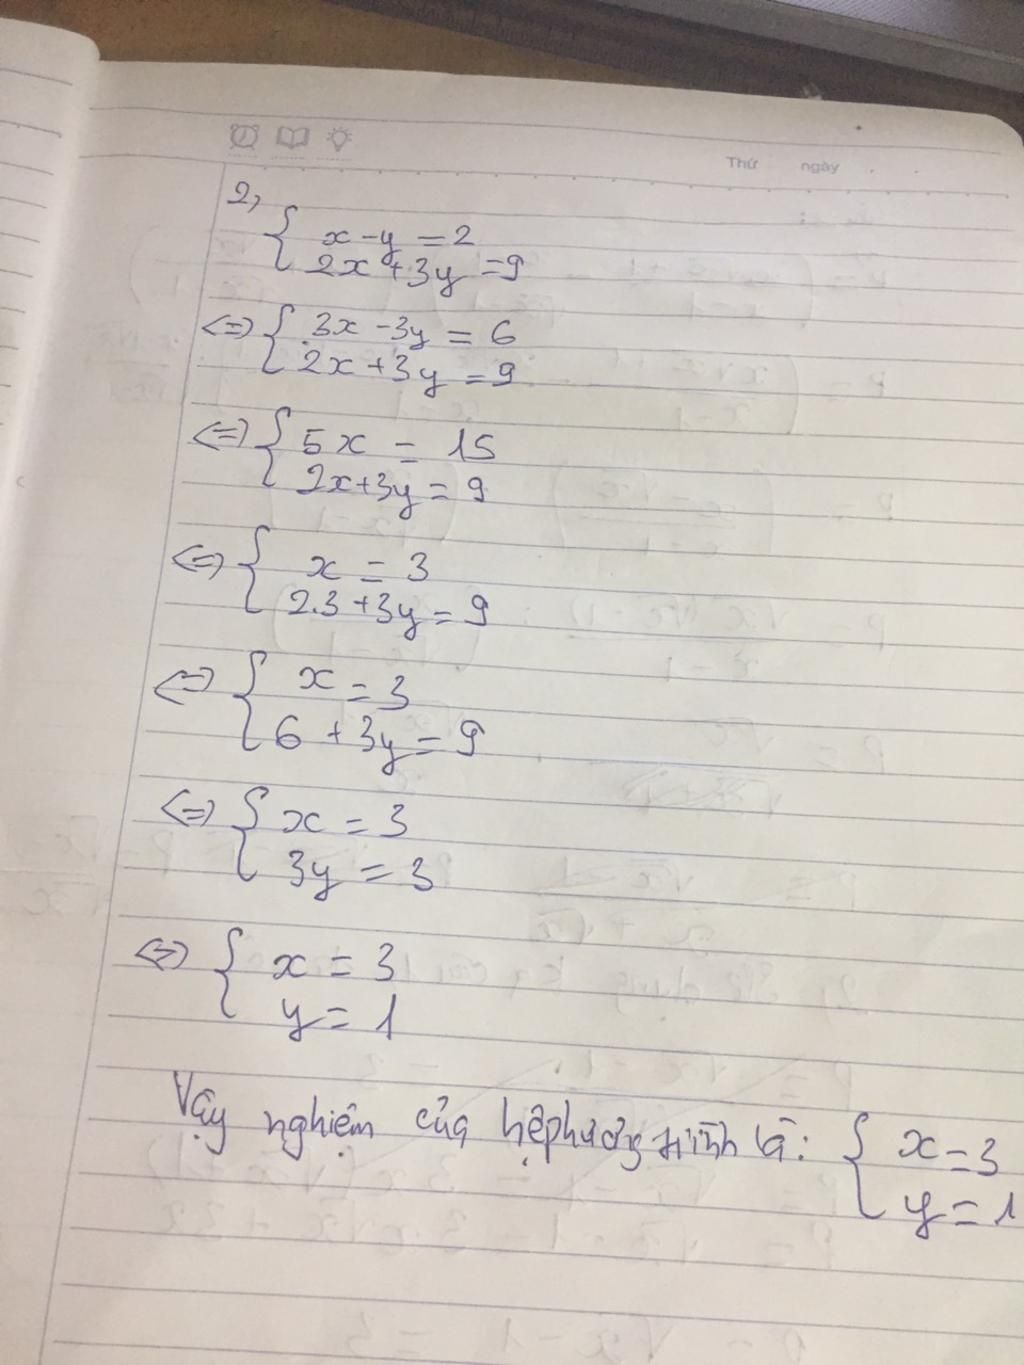 Thứ ngày
2,
{ x - y = 2
2x + 3y = 9
<=> { 3x - 3y = 6
2x + 3y = 9
<=> { 5x = 15
2x + 3y = 9
<=> { x = 3
2.3 + 3y = 9
<=> { x = 3
6 + 3y = 9
<=> { x = 3
3y = 3
<=> { x = 3
y = 1
Vậy nghiệm của hệ phương trình là: { x = 3
y = 1